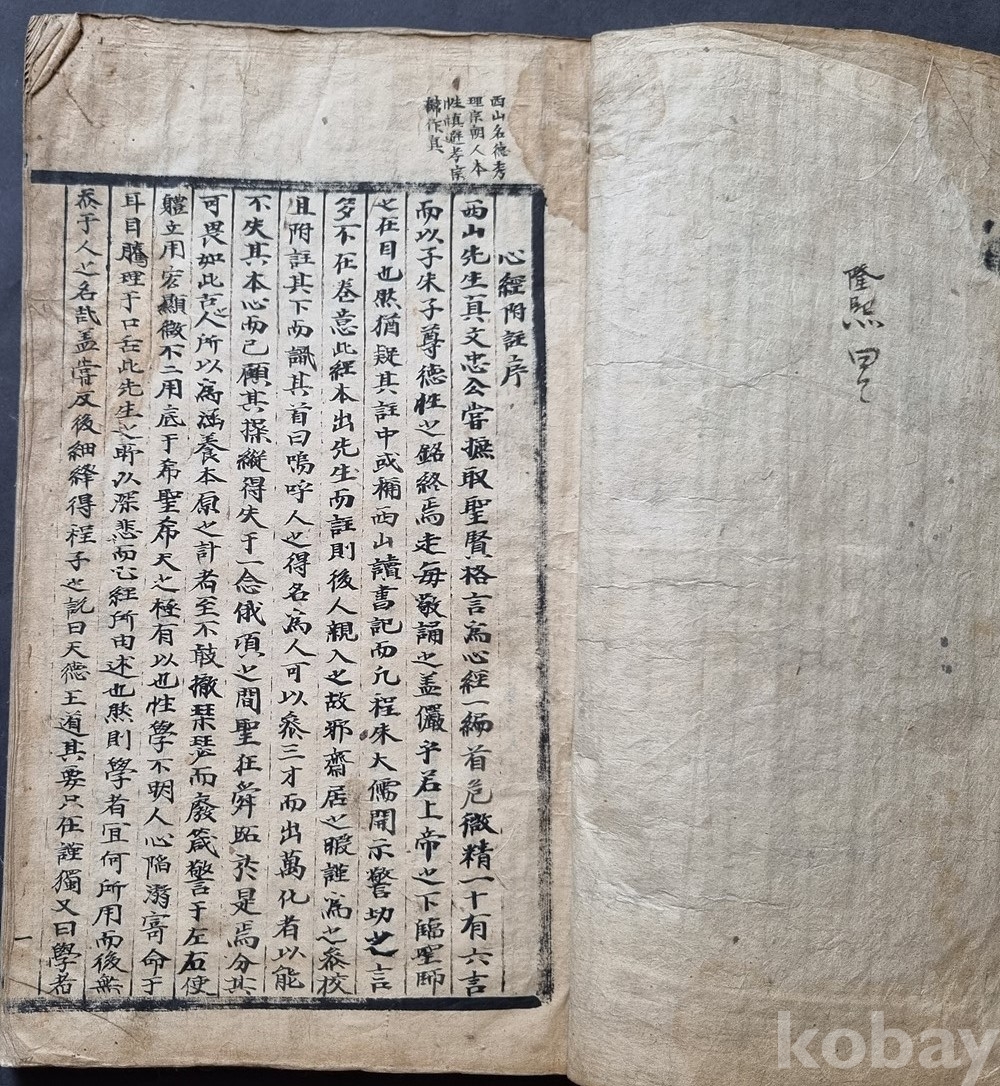 隆熙 四
西山名德秀
理宗朝人本
性慎避孝宗
諱作真
心經附註序
西山先生真文忠公嘗摭取聖賢格言爲心經一編首危微精一十有六言
而以子朱子尊德性之銘終焉走每敬誦之盖儼乎若上帝之下臨聖師
之在目也然猶疑其註中或稱西山讀書記而凡程朱大儒開示警切之言
多不在卷意此經本出先生而註則後人親入之故邪齋居之暇謹爲之叅校
且附註其下而識其首曰嗚呼人之得名爲人可以叅三才而出萬化者以能
不失其本心而已顧其操縱得失于一念俄頃之間聖狂舜跖於是焉分其
可畏如此古人所以爲涵養本原之計者至不敢撤琹瑟而廢箴警于左右使
軆立用宏顯微不二用底于希聖希天之極有以也性學不明人心陷溺寄命于
耳目騰理于口舌此先生之所以深悲而心經所由述也然則學者宜何所用而後無
忝于人之名哉盖嘗反後細繹得程子之説曰天德王道其要只在謹獨又曰學者
一